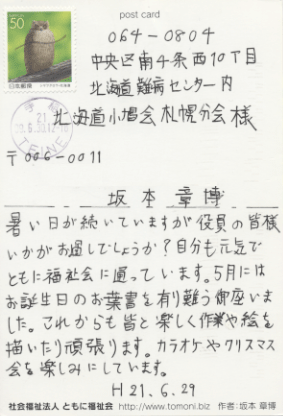 post card
50
日本郵便
手稲
21
TEINE
064-0804
中央区南4条西10丁目
北海道難病センター内
北海道小鳩会札幌分会様
〒006-0011
坂本章博
暑い日が続いていますが役員の皆様
いかがお過しでしょうか?自分も元気で
ともに福祉会に通っています。5月には
お誕生日のお葉書を有り難う御座いま
した。これからも皆と楽しく作業や絵を
描いたり頑張ります。カラオケやクリスマス
会を楽しみにしています。
H21.6.29
社会福祉法人 ともに福祉会 http://www.tomoni.biz 作者:坂本 章博